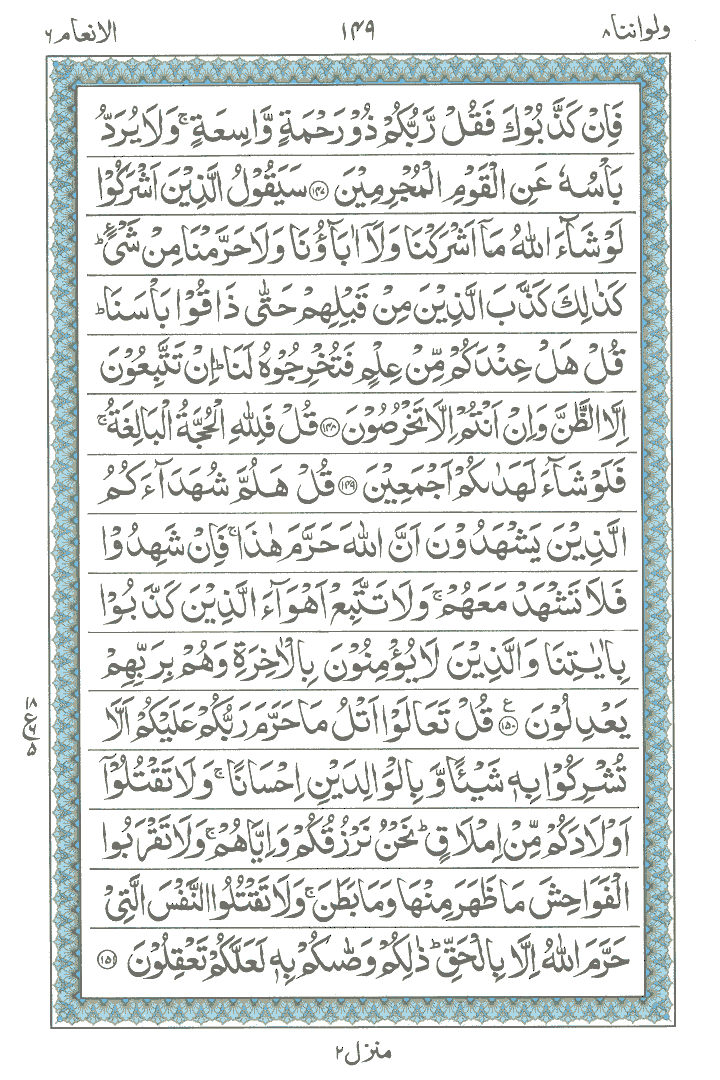 ولواننا ۸
۱۴۹
الانعام ۶
فَاِنْ كَذَّبُوْكَ فَقُلْ رَّبُّكُمْ ذُوْ رَحْمَةٍ وَّاسِعَةٍ ۚ وَلَا يُرَدُّ
بَاْسُهٗ عَنِ الْقَوْمِ الْمُجْرِمِيْنَ ﴿۱۴۷﴾ سَيَقُوْلُ الَّذِيْنَ اَشْرَكُوْا
لَوْ شَآءَ اللّٰهُ مَاۤ اَشْرَكْنَا وَلَاۤ اٰبَآؤُنَا وَلَا حَرَّمْنَا مِنْ شَیْءٍ ؕ
كَذٰلِكَ كَذَّبَ الَّذِيْنَ مِنْ قَبْلِهِمْ حَتّٰى ذَاقُوْا بَاْسَنَا ؕ
قُلْ هَلْ عِنْدَكُمْ مِّنْ عِلْمٍ فَتُخْرِجُوْهُ لَنَا ؕ اِنْ تَتَّبِعُوْنَ
اِلَّا الظَّنَّ وَاِنْ اَنْتُمْ اِلَّا تَخْرُصُوْنَ ﴿۱۴۸﴾ قُلْ فَلِلّٰهِ الْحُجَّةُ الْبَالِغَةُ ۚ
فَلَوْ شَآءَ لَهَدٰىكُمْ اَجْمَعِيْنَ ﴿۱۴۹﴾ قُلْ هَلُمَّ شُهَدَآءَكُمُ
الَّذِيْنَ يَشْهَدُوْنَ اَنَّ اللّٰهَ حَرَّمَ هٰذَا ۚ فَاِنْ شَهِدُوْا
فَلَا تَشْهَدْ مَعَهُمْ ۚ وَلَا تَتَّبِعْ اَهْوَآءَ الَّذِيْنَ كَذَّبُوْا
بِاٰيٰتِنَا وَالَّذِيْنَ لَا يُؤْمِنُوْنَ بِالْاٰخِرَةِ وَهُمْ بِرَبِّهِمْ
يَعْدِلُوْنَ ﴿۱۵۰﴾ ع قُلْ تَعَالَوْا اَتْلُ مَا حَرَّمَ رَبُّكُمْ عَلَيْكُمْ اَلَّا
تُشْرِكُوْا بِهٖ شَيْـًٔا وَّ بِالْوَالِدَيْنِ اِحْسَانًا ۚ وَلَا تَقْتُلُوْۤا
اَوْلَادَكُمْ مِّنْ اِمْلَاقٍ ؕ نَحْنُ نَرْزُقُكُمْ وَاِيَّاهُمْ ۚ وَلَا تَقْرَبُوا
الْفَوَاحِشَ مَا ظَهَرَ مِنْهَا وَمَا بَطَنَ ۚ وَلَا تَقْتُلُوا النَّفْسَ الَّتِىْ
حَرَّمَ اللّٰهُ اِلَّا بِالْحَقِّ ؕ ذٰلِكُمْ وَصّٰىكُمْ بِهٖ لَعَلَّكُمْ تَعْقِلُوْنَ ﴿۱۵۱﴾
۱۸
ع
۵
منزل ۲